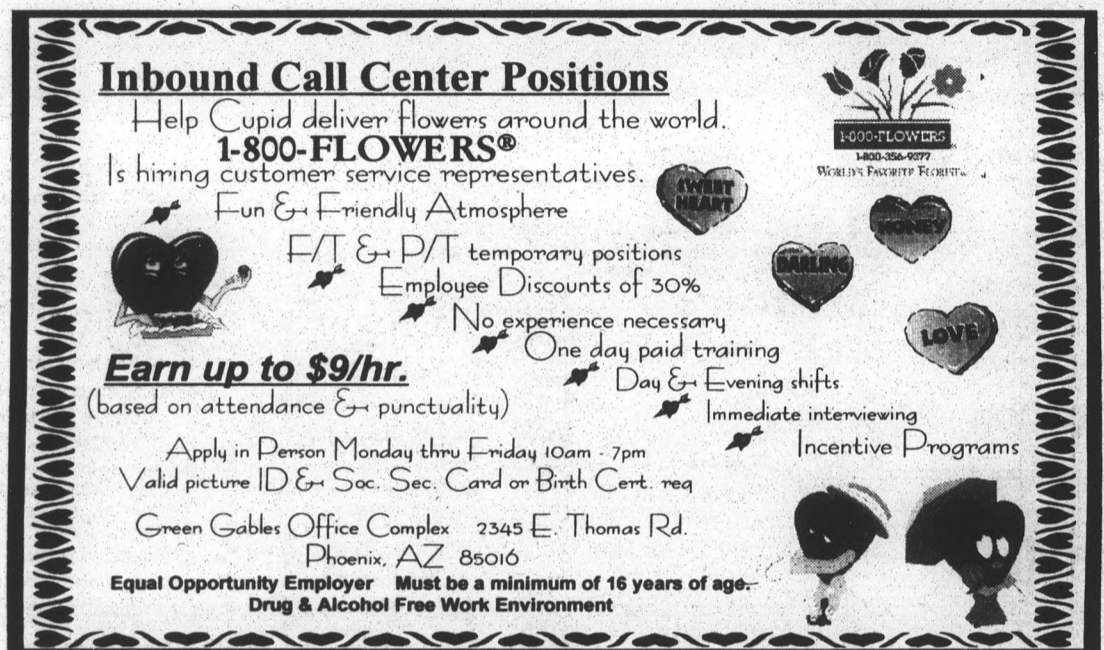 Inbound Call Center Positions
Help Cupid deliver flowers around the world.
1-800-FLOWERS®
Is hiring customer service representatives.
Fun & Friendly Atmosphere
F/T & P/T temporary positions
Employee Discounts of 30%
No experience necessary
One day paid training
Day & Evening shifts
Immediate interviewing
Incentive Programs
Earn up to $9/hr.
(based on attendance & punctuality)
Apply in Person Monday thru Friday 10am - 7pm
Valid picture ID & Soc. Sec. Card or Birth Cert. req
Green Gables Office Complex 2345 E. Thomas Rd.
Phoenix, AZ 85016
Equal Opportunity Employer Must be a minimum of 16 years of age.
Drug & Alcohol Free Work Environment
1-800-FLOWERS
1-800-356-9377
WORLD'S FAVORITE FLORIST
SWEET
HEART
HONEY
DARLING
LOVE